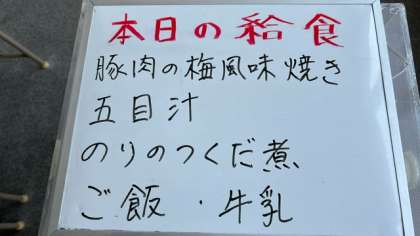 本日の給食
豚肉の梅風味焼き
五目汁
のりのつくだ煮
ご飯・牛乳